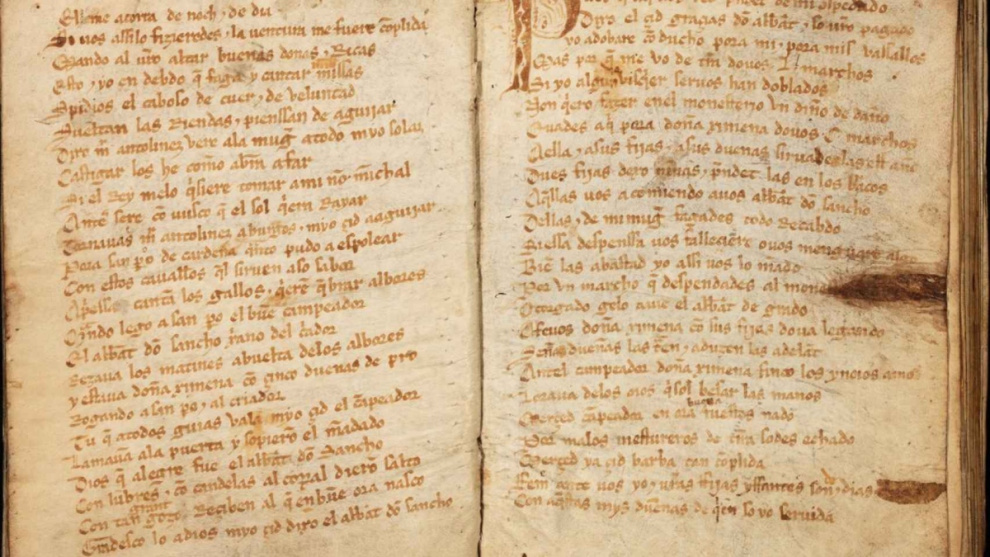 Ella me acorra de noch ⁊ de dia
Si uos assilo fizieredes ⁊ la uentura me fuere cõplida
Mando al ur̃o altar buenas donas ⁊ Ricas
Esto ⁊ yo en debdo q̃ faga y cantar missas
Spidios el caboso de cuer ⁊ de veluntad
Sueltan las Riendas ⁊ pienssan de aguijar
Dixo m̃ antolinez vere ala mugr̃ a todo myo solaz
Castigar los he com̃o abrã a far
Si el Rey melo q̃siere tomar a mi nõ m̃chal
Antes sere cõ uusco q̃ el sol q̃era Rayar
Tornauas m̃ antolinez a burgos ⁊ myo çid aaguijar
Pora san po de cardeña q̃nto pudo a espolear
Con estos cauallos q̃l siruen aso sabor
Apriessa cantã los gallos ⁊ q̃erẽ q̃brar albores
Qñdo lego a san po el buẽ campeador
El abbat dõ sancho xr̃ano del c̃ador
Rezaua los matines abuelta delos albores
y estaua doña ximena cõ çinco duenas de pro
Rogando a san po ⁊ al criador
Tu q̃ atodos guias val a myo çid el cãpeador
Lamauã ala puerta y sopierõ el mãdado
Dios q̃ alegre fue el abbat dõ sancho
Con lũbres ⁊ cõ candelas al corral dierõ salto
Con tan grant gozo Reçiben al q̃ en buẽ ora nasco
Gradesco lo adios myo çid dixo el abbat dõ sancho
Dixo el çid graçias dõ abbat ⁊ so ur̃o pagado
yo adobare cõ ducho pora mi ⁊ pora mis vassallos
Mas por q̃ me vo de tr̃a douos L marchos
Si yo algũ visq̃er seruos han doblados
Non q̃ero fazer enel monesterio vn dĩo de daño
Euades aq̃ pora doña ximena douos C marchos
Aella ⁊ asus fijas ⁊ asus duenas siruades las est año
Dues fijas dexo niñas ⁊ prẽdet las en los braços
Aq̃llas uos acomiendo auos abbat dõ sancho
Dellas ⁊ de mi mugr̃ fagades todo Recabdo
Si essa despenssa uos falleçiere ouos menguare algo
Biẽ las abastad yo assi uos lo mando
Por vn marcho q̃ despendades al mones
Otorgado gelo auie el abbat de grado
Afeuos doña ximena cõ sus fijas do ua legando
Señas dueñas las traẽ ⁊ aduzen las adelãt
Antel campeador doña ximena finco los ynoios amos
Loraua delos oios q̃sol besar las manos
Merçed cãpeador en ora buena fuestes nado
Por malos mestureros de tr̃a sodes echado
Merçed ya çid barba tan cõplida
Fem ante uos yo ⁊ uras fijas yffantes son ⁊ de dias
Con aq̃stas mys duenas de q̃en so yo seruida